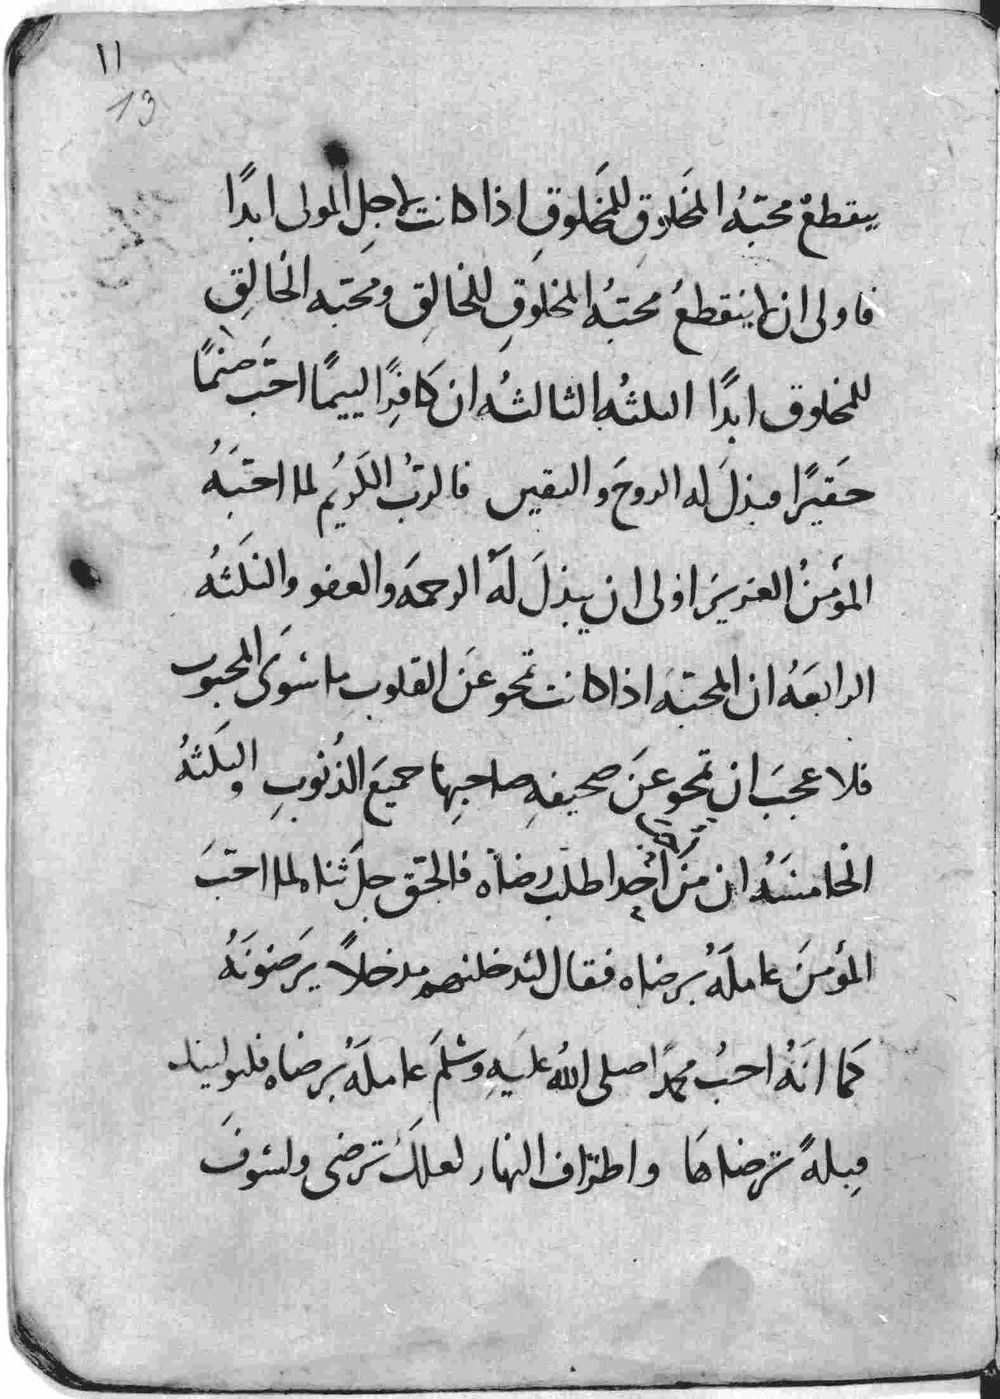 ١١
13
ينقطع محبّهُ المخَلوقِ للمخَلوقِ اذا كانت لاجلِ المولى ابدًا
فاولى ان لا ينقطعُ محبّهُ المخلوقِ للخالِقِ ومحبّه الخالِقِ
للمخلوق ابدًا النكثهُ الثالثهُ ان كافِرًا لييمًا احبّ صَنمًا
حَقيرًا فبذلَ له الروحَ والنفيس فالربُ الكريُم لما احبّهَُ
المؤمِنُ العزيزَ اولى ان يبذلَ لَهُ الرحمهَ والعفو والنكثهُ
الرابعَهُ ان المحبّه اذا كانت تمحو عَن القلوبِ ما سوَى المحبوب
فلا عجبَ ان تمحو عنَ صحيفهِ صاحبِها جميعَ الذُنوبِ والنكثهُ
الخامسَهُ ان مَن احَبَ احدا طلبَ رضاهُ فالحقّ جلَ ثناه لما احبّ
المؤمنَ عاملَهُ برضاه فقال لندخلنهم مدخلاً يرَضونَهُ
كما انَهُ احبُ محمدًا صلى اللهُ عليَهِ وسَلَم عاملَهُ برضاه فلنولينك
قبلةً ترضاها واطرَاف النهار لعلكَ ترضى ولسَوفَ